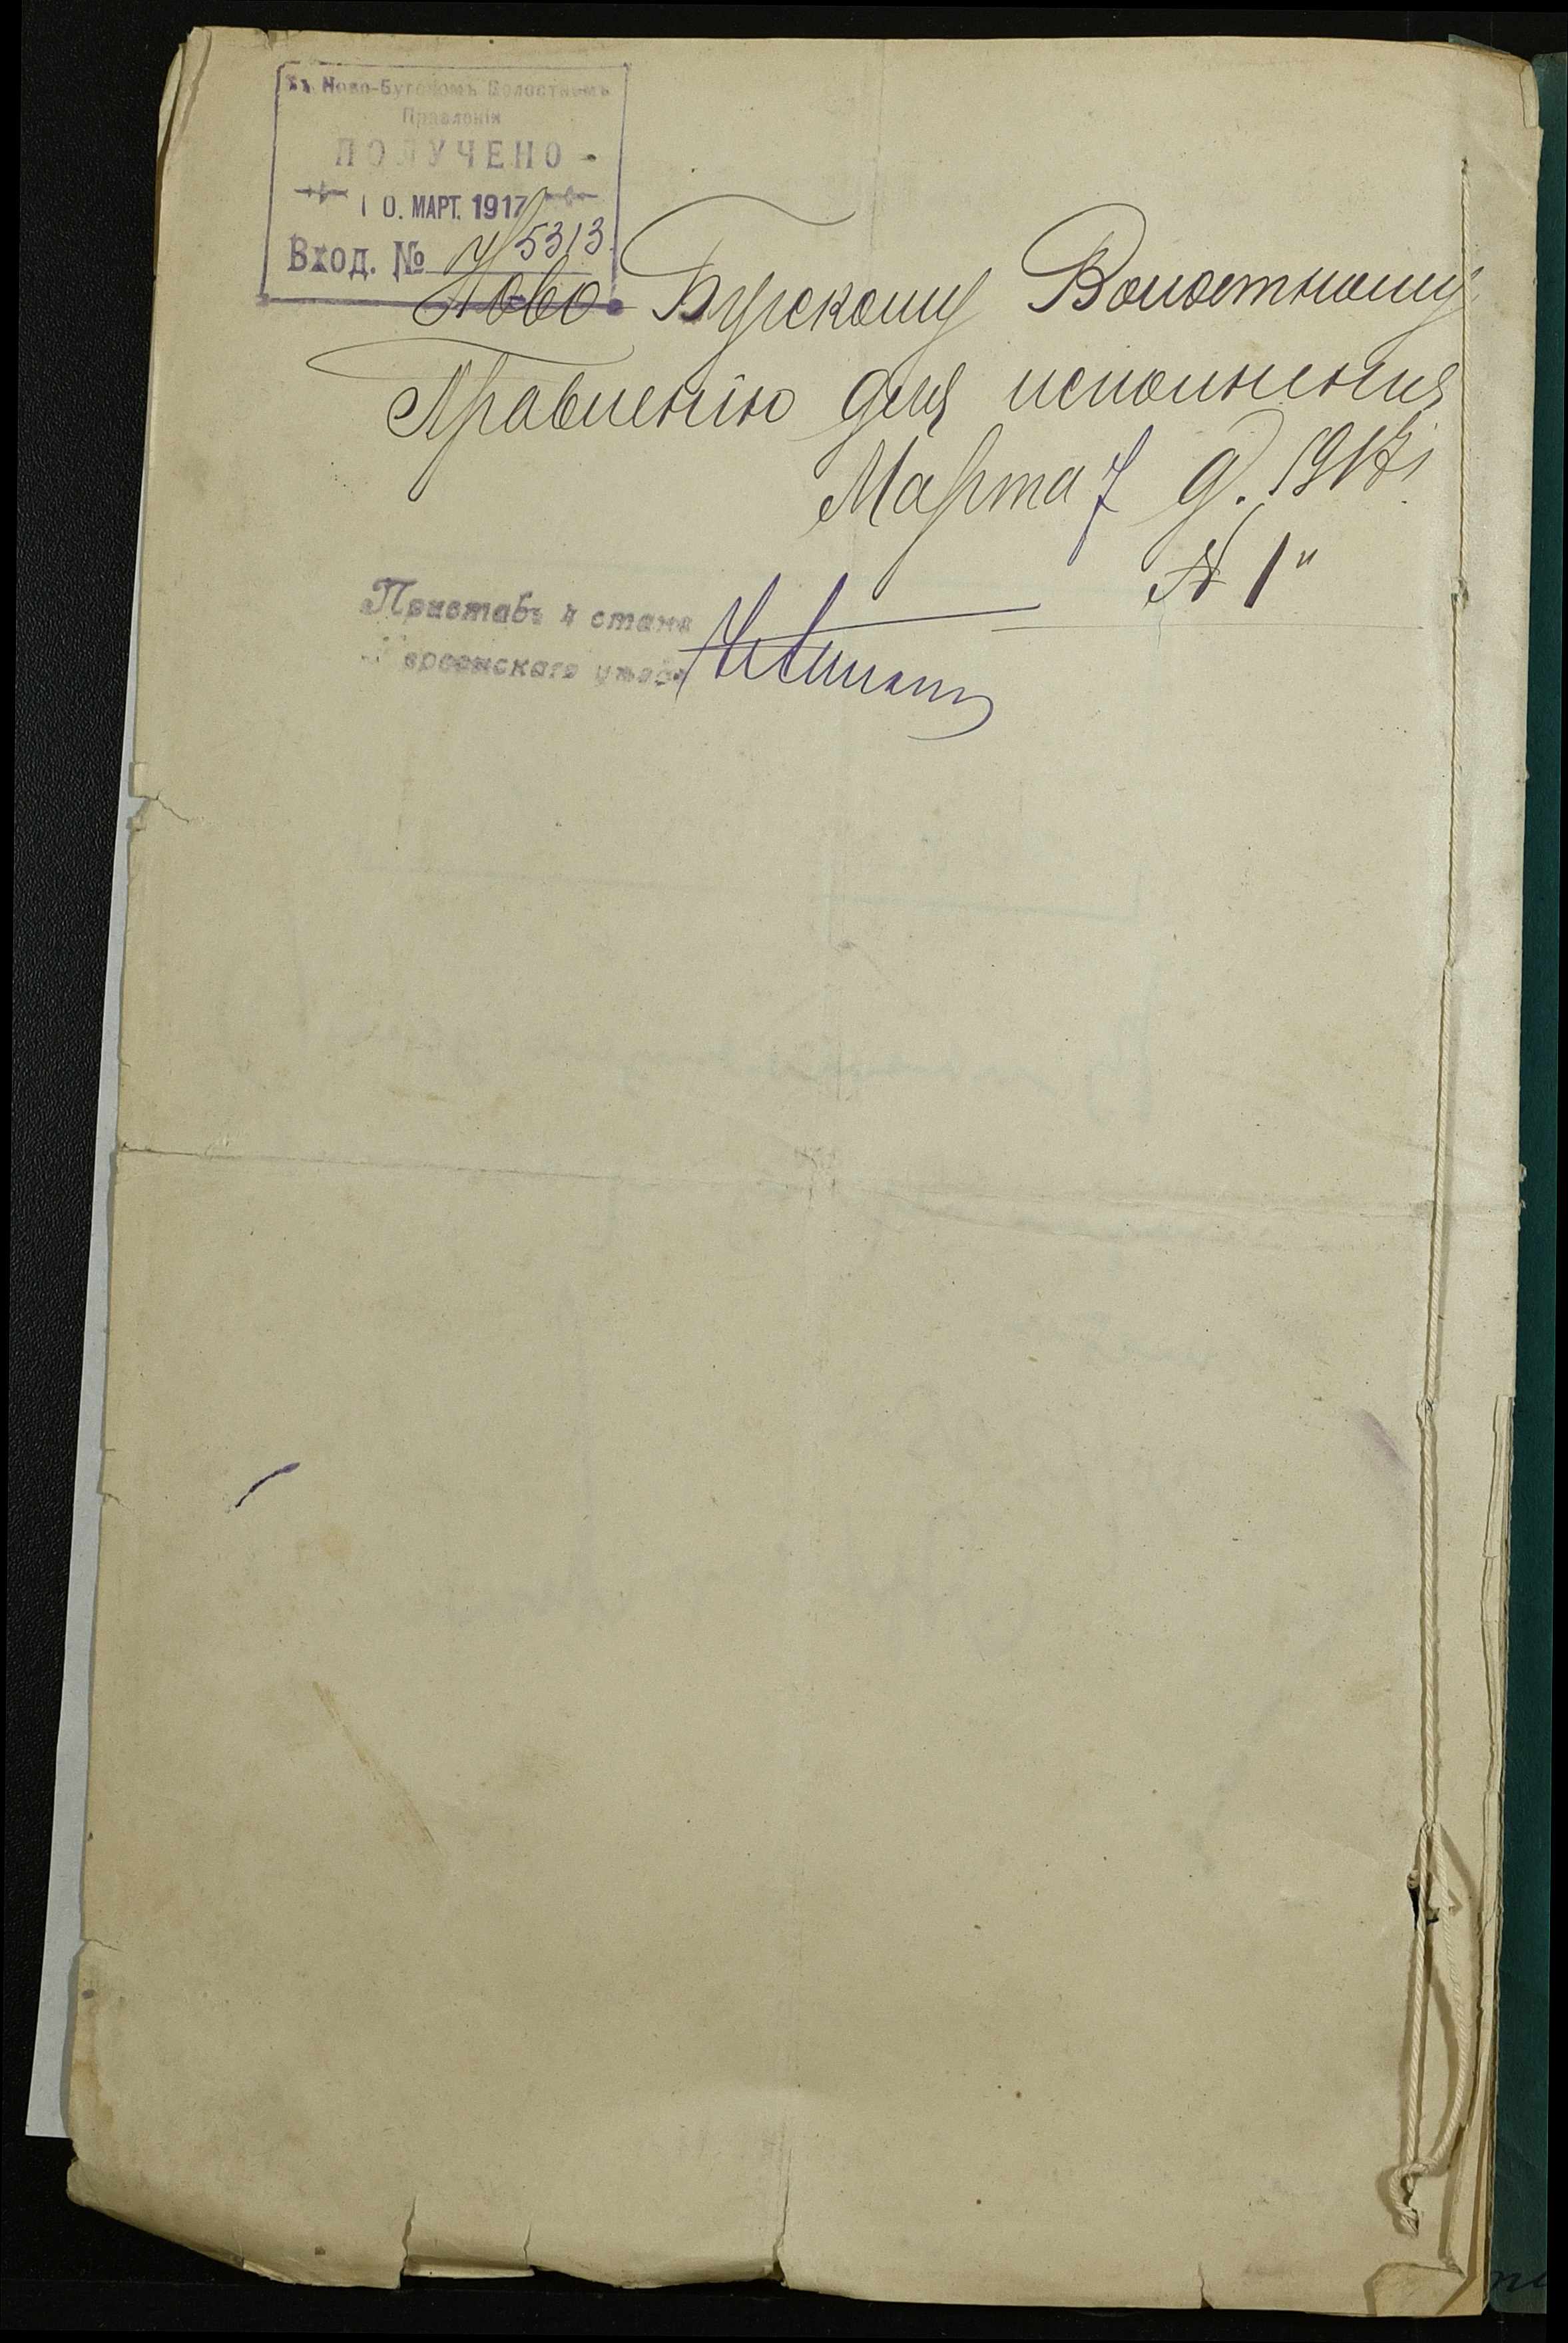 Въ Ново-Бугскомъ Волостномъ
Правленіи
ПОЛУЧЕНО
10. МАРТ. 1917
Вход. № 5313
Ново Бугскому Волостному
Правленію для исполненія
Марта 7 д. 1917 г.
№ 1"
Приставъ 4 стана
Херсонскаго уѣзда